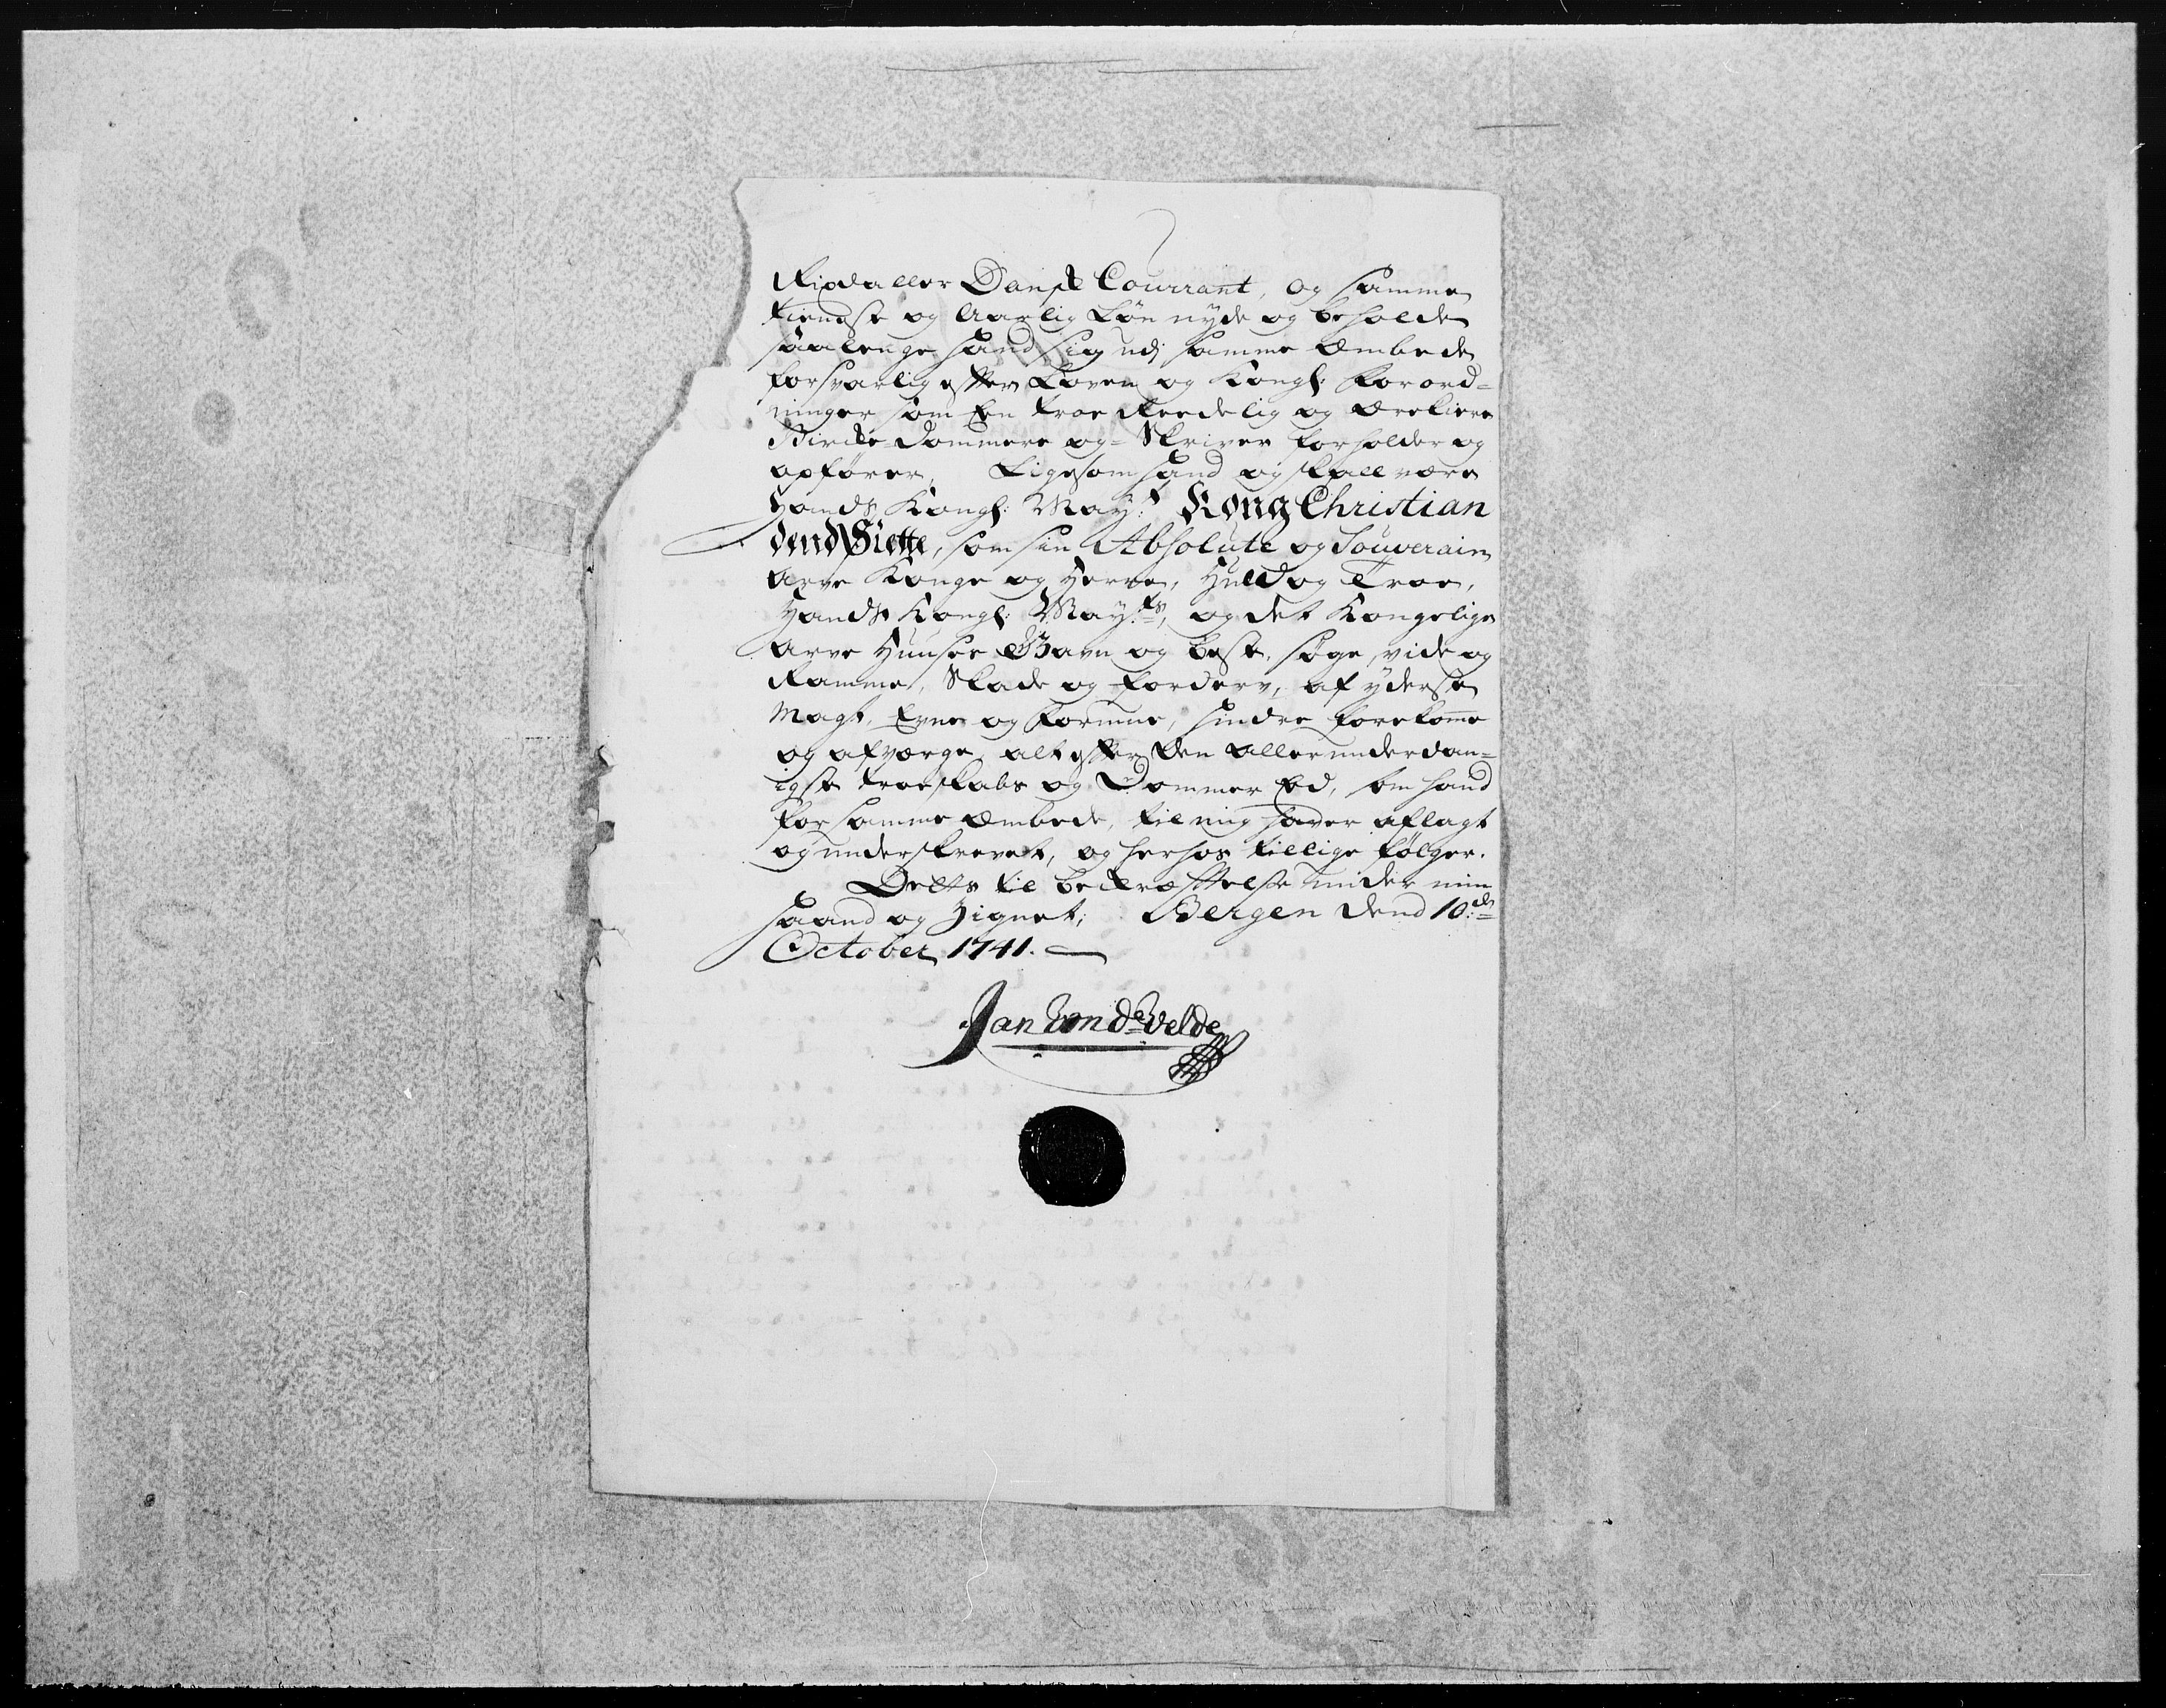 Rixdaller Danske Courrant, og samme
tieneste og Aarlig Løn nyde og beholde
saalenge hand sig udj samme Embede
forsvarlig efter Loven og Kongl: Forord=
ninger som Een troe Reedelig og ærekiere
Bircke-Dommere og= Skriver forholder og
opfører, Ligesom hand og skall være
Hands Kongl: May:t Kong Christian
dend Siette, som sin Absolute og Souverain
Arve Konge og Herre, Huld og Troe,
Hands Kongl: May:ts, og det Kongelige
Arve Huuses Gavn og beste, søge, vide og
Ramme, Skade og forderv, af yderste
Magt, Evne og formue, hindre forekomme
og afværge, alt efter den allerunderdan=
igste troeskabs og Dommer Eed, som hand
for samme Embede, til mig haver aflagt
og underskrevet, og herhos tillige følger.
Dette til bekræfftelse under min
haand og Zignet; Bergen dend 10:de
October 1741.
Jan Von de Velde